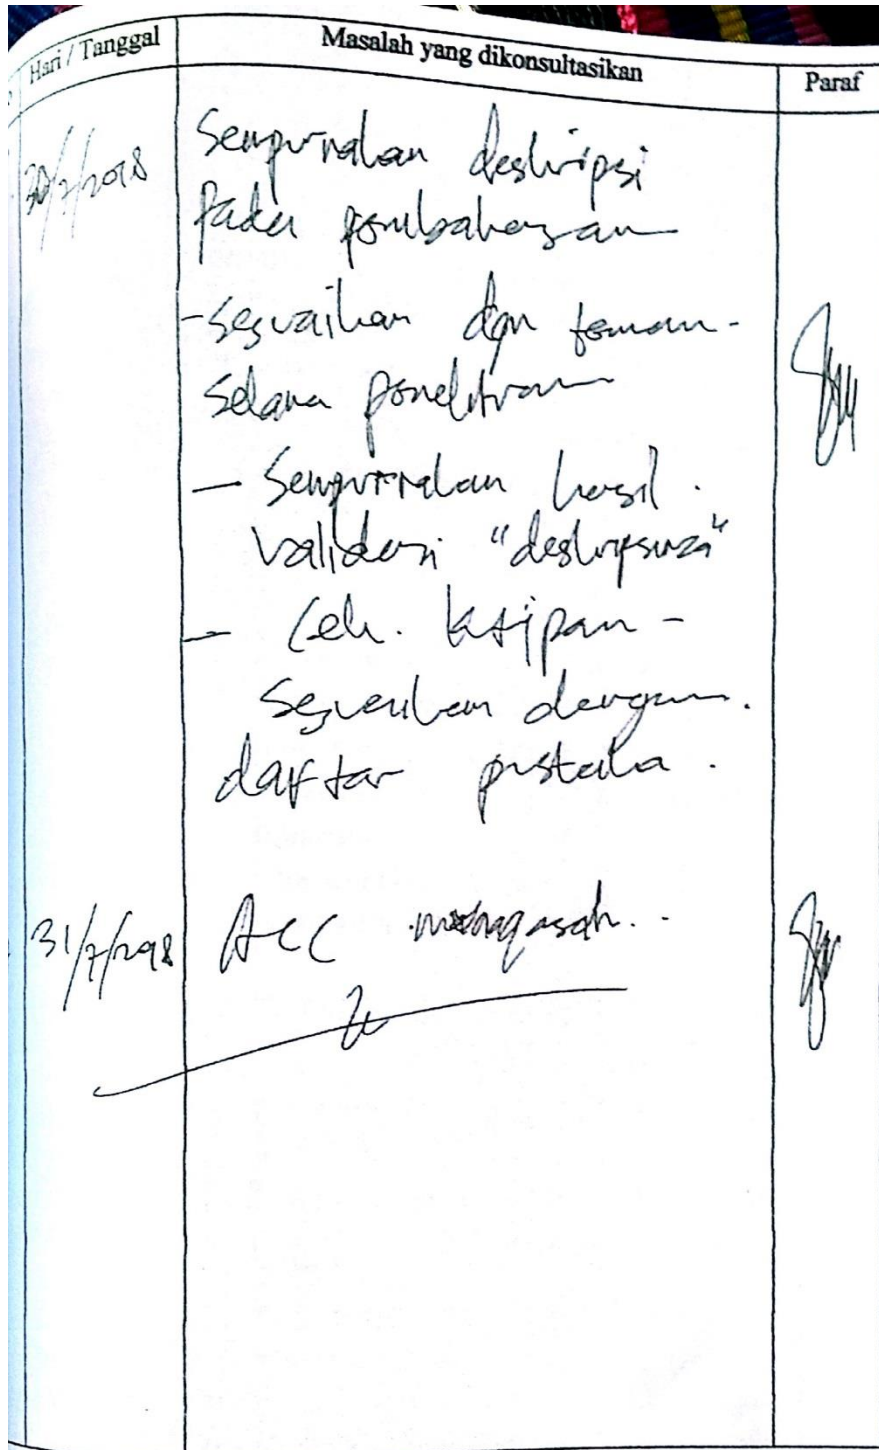 Hari / Tanggal
Masalah yang dikonsultasikan
Paraf
30/7/2018
Sempurnakan deskripsi
Pada pembahasan
- Sesuaikan dgn temuan -
Selama penelitian
- Sempurnakan hasil.
Validasi "deskripsinya"
- Cek. kutipan -
Sesuaikan dengan.
daftar pustaka.
31/7/2018
ACC munaqasah..